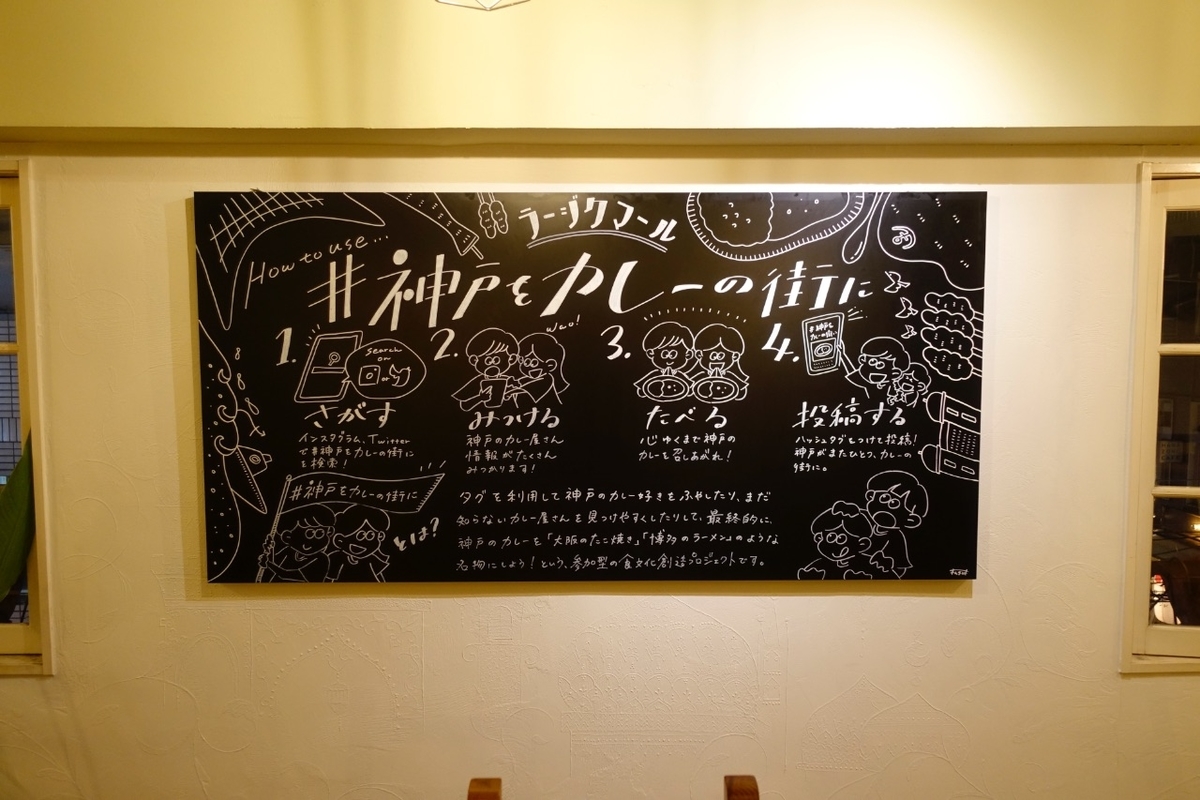 ラージクマール
How to use...
#神戸をカレーの街に
1.
search
on
or
さがす
インスタグラム、Twitter
で#神戸をカレーの街に
を検索!
2.
Wao!
みつける
神戸のカレー屋さん
情報がたくさん
みつかります!
3.
たべる
心ゆくまで神戸の
カレーを召しあがれ!
4.
#神戸を
カレーの街に
投稿する
ハッシュタグをつけて投稿!
神戸がまたひとつ、カレーの
街に。
#神戸をカレーの街に
とは?
タグを利用して神戸のカレー好きをふやしたり、まだ
知らないカレー屋さんを見つけやすくしたりして、最終的に、
神戸のカレーを「大阪のたこ焼き」「博多のラーメン」のような
名物にしよう!という、参加型の食文化創造プロジェクトです。